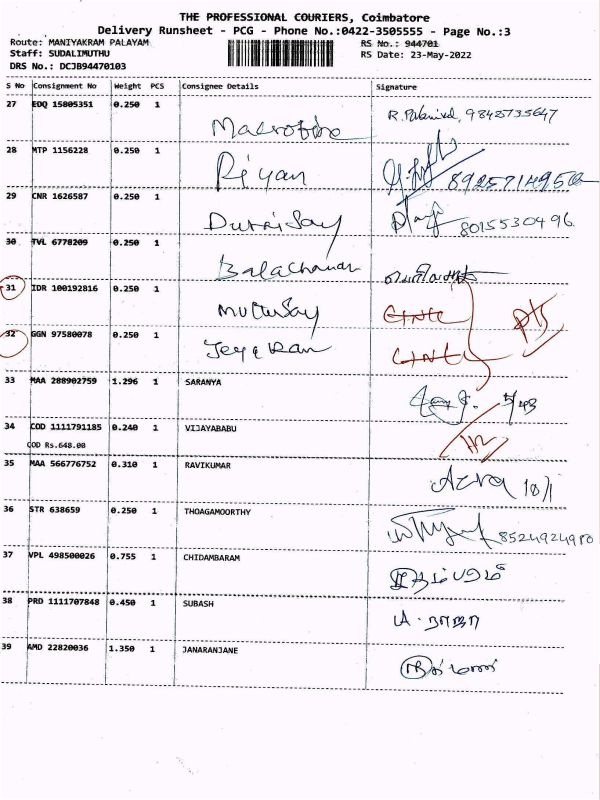 THE PROFESSIONAL COURIERS, Coimbatore
Delivery Runsheet - PCG - Phone No.:0422-3505555 - Page No.:3
Route: MANIYAKRAM PALAYAM
Staff: SUDALIMUTHU
DRS No.: DCJB94470103
RS No.: 944701
RS Date: 23-May-2022
S No Consignment No Weight PCS Consignee Details Signature
27 EDQ 15805351 0.250 1 R. Palanivel, 9842735647
28 MTP 1156228 0.250 1 Riyan 8925714950
29 CNR 1626587 0.250 1 Duraisay 8015530496
30 TVL 6778209 0.250 1 Balachandar
31 IDR 100192816 0.250 1 Muthusay
32 GGN 97580078 0.250 1 Jeyakaran
33 MAA 288902759 1.296 1 SARANYA
34 COD 1111791185 0.240 1 VIJAYABABU
COD Rs.648.00
35 MAA 566776752 0.310 1 RAVIKUMAR 18/1
36 STR 638659 0.250 1 THOAGAMOORTHY 8524924980
37 VPL 498500026 0.755 1 CHIDAMBARAM
38 PRD 1111707848 0.450 1 SUBASH
39 AMD 22820036 1.350 1 JANARANJANE